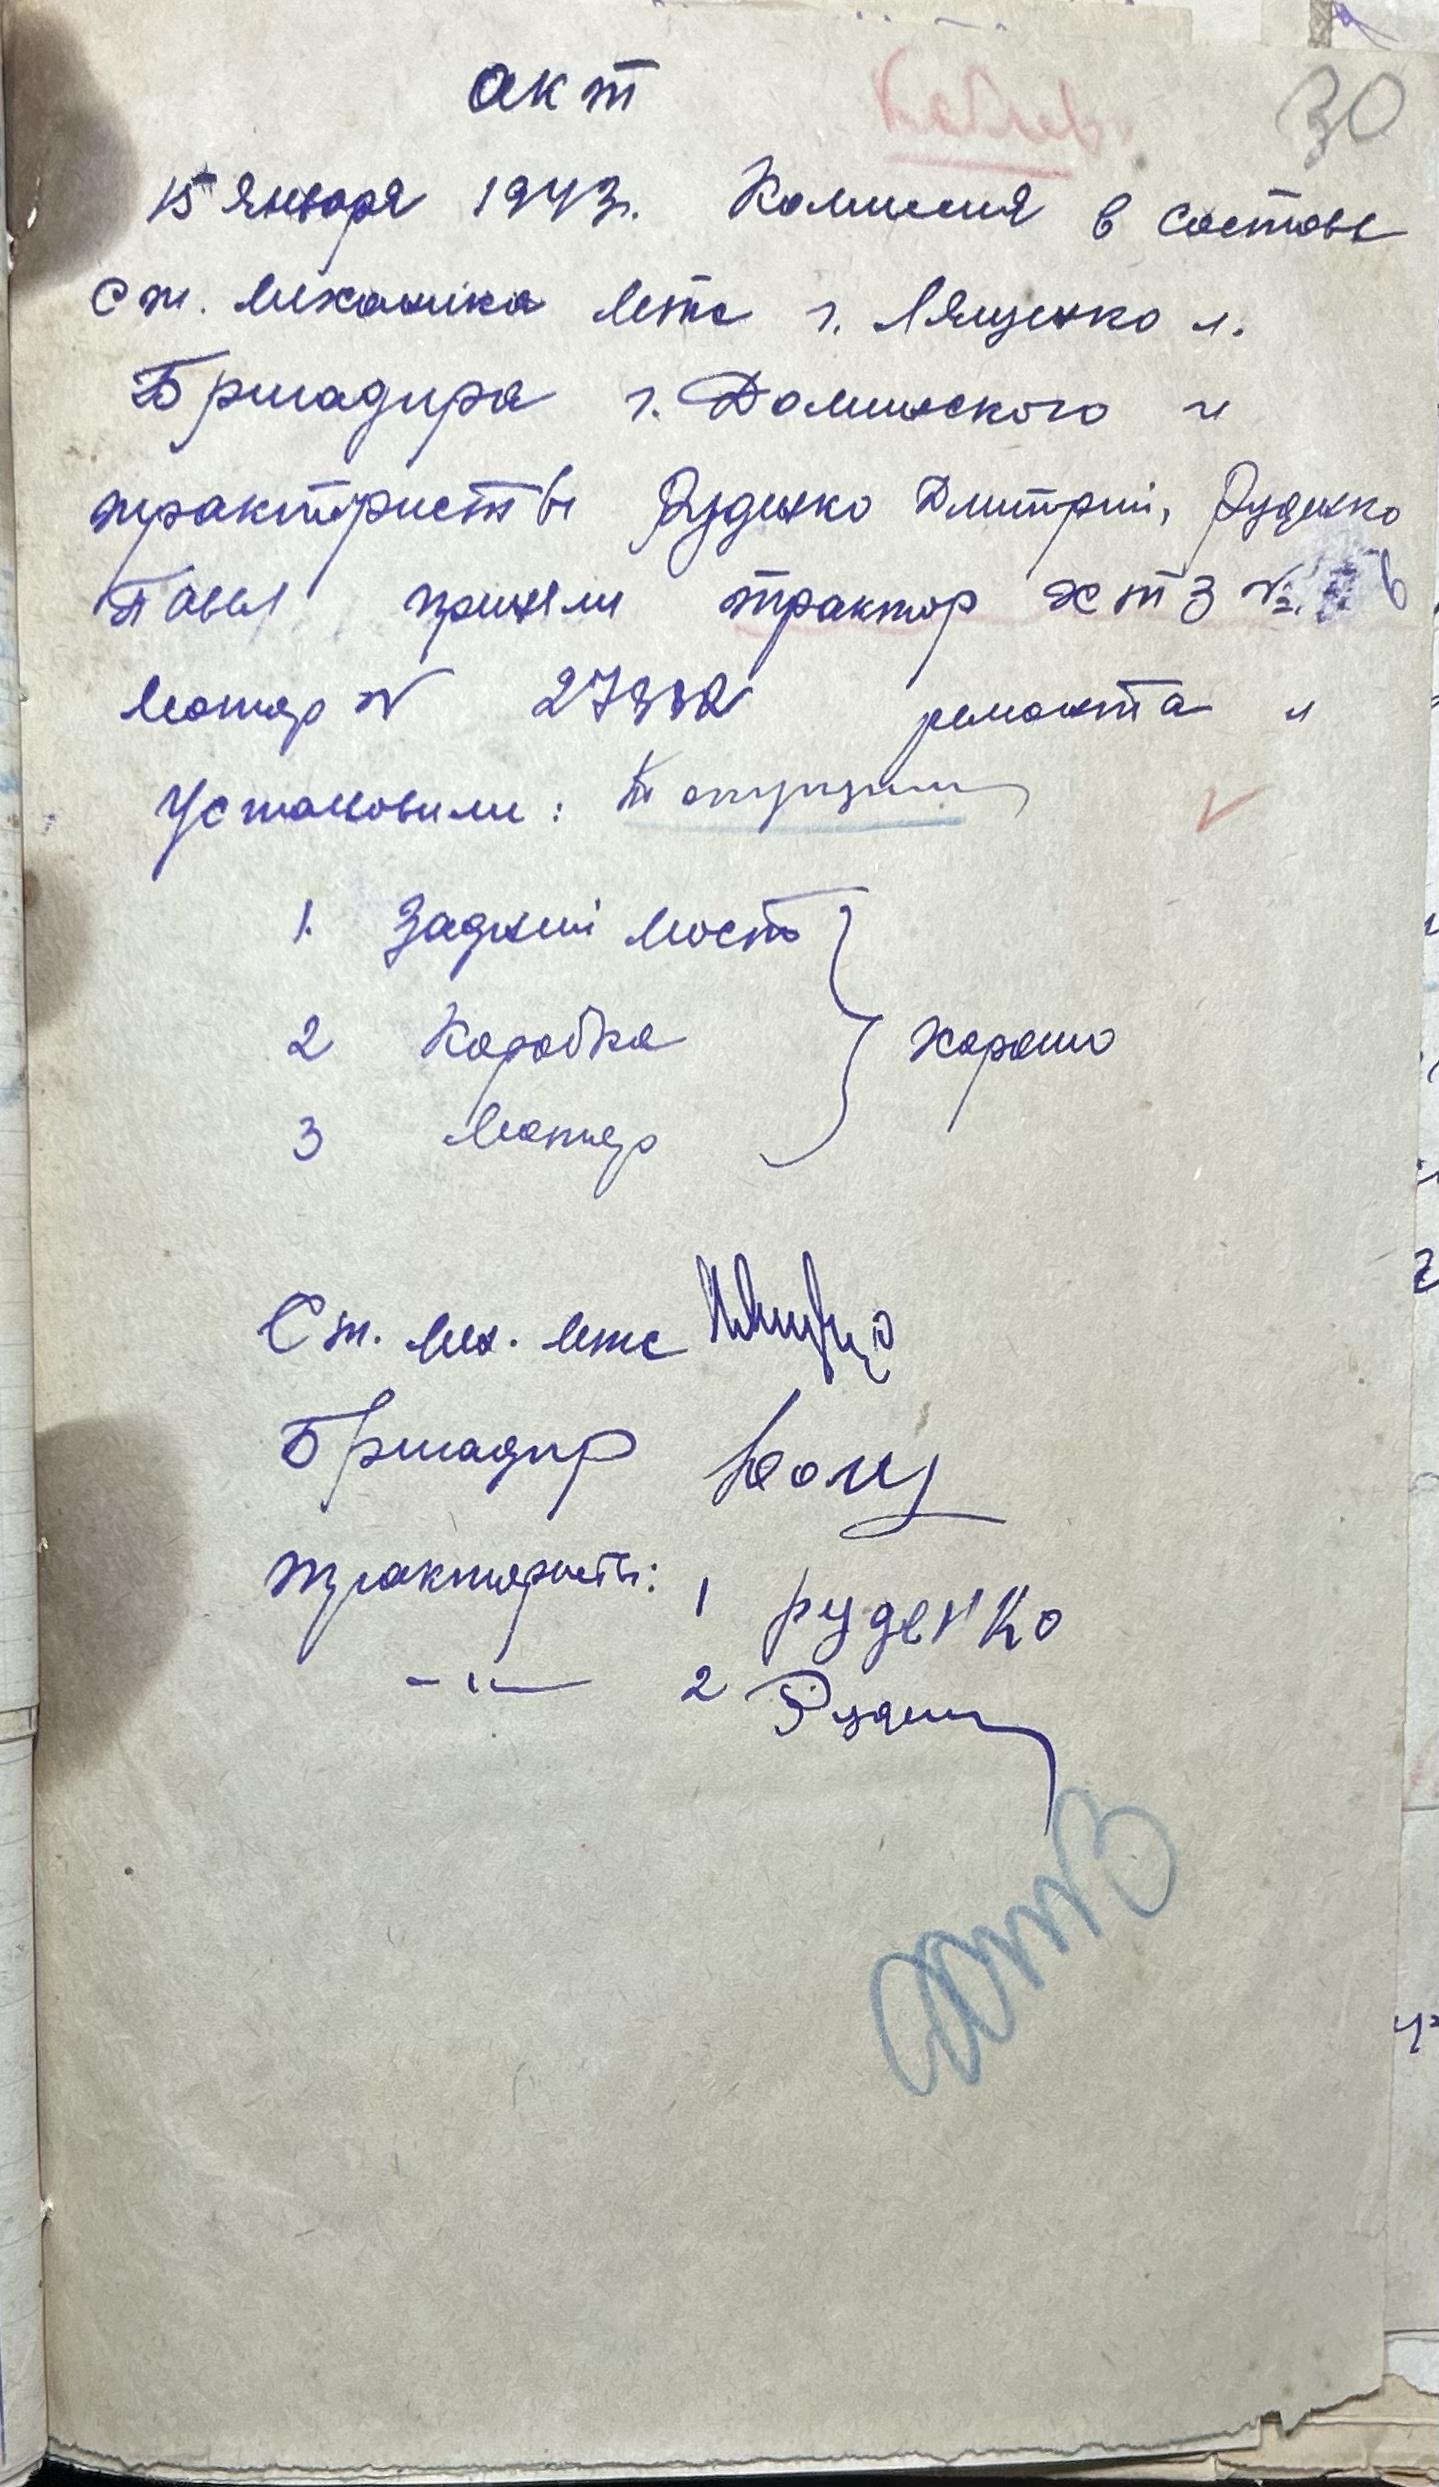 акт
30
15 января 1943г. Комиссия в составе
ст. механика мтс г. Лященко и.
Бригадира г. Долинского и
трактористы Руденко Дмитрий, Руденко
Павел приняли трактор ХТЗ №
мотор № 27332 ремонта и
Установили:
1. Задний мост
2 Коробка хорошо
3 Мотор
Ст. мех. мтс
Бригадир Дол
трактористы: 1 руденко
-"- 2 Руден